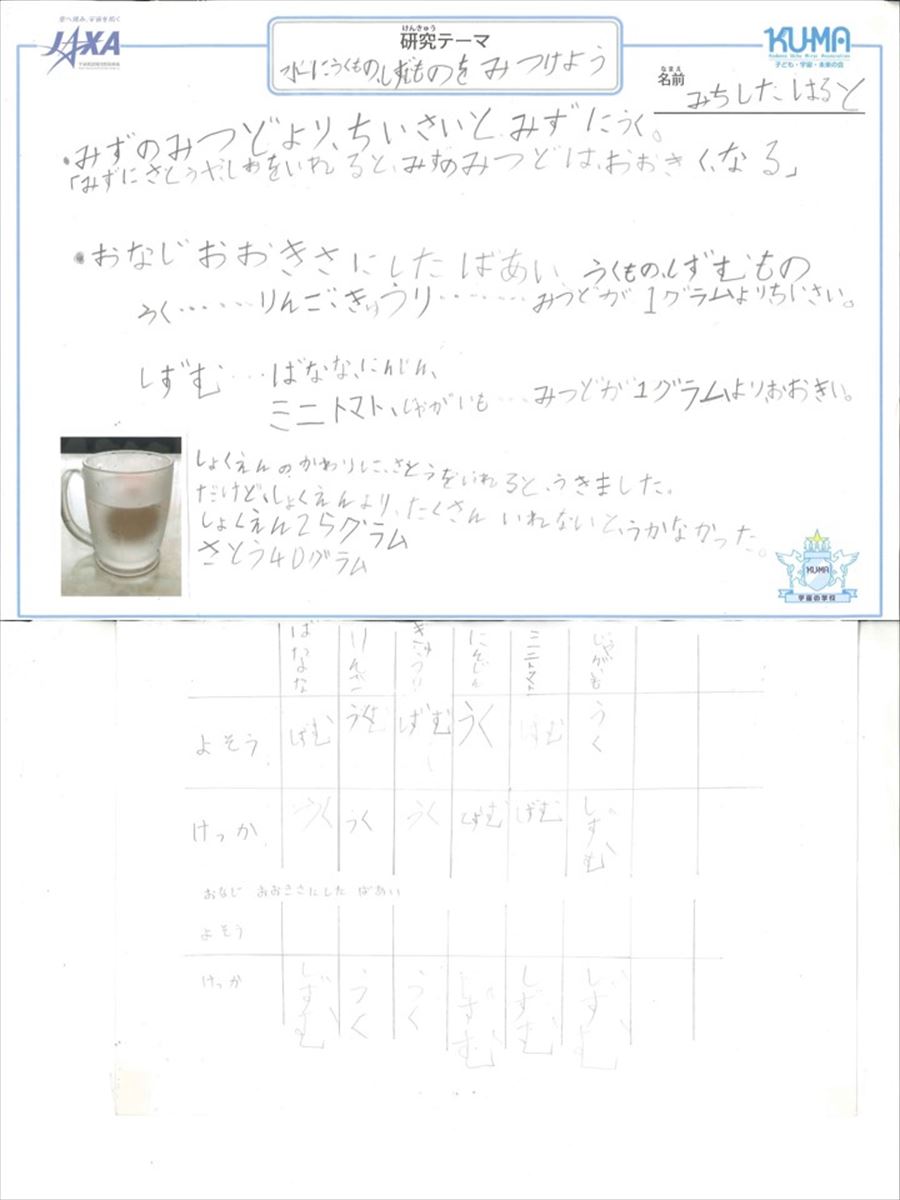 空へ挑み、宇宙を拓く
JAXA
けんきゅう
研究テーマ
水にうくもの、しずむものをみつけよう
KU-MA
子ども・宇宙・未来の会
なまえ
名前
みちした はると
・みずのみつどより、ちいさいと、みずにうく。
「みずにさとうやしおをいれると、みずのみつどは、おおきくなる」
・おなじおおきさにしたばあい うくもの、しずむもの
うく……りんご、きゅうり………みつどが1グラムよりちいさい。
しずむ…ばなな、にんじん、
ミニトマト、じゃがいも…みつどが1グラムよりおおきい。
しょくえんのかわりに、さとうをいれると、うきました。
だけど、しょくえんより、たくさん いれないと、うかなかった。
しょくえん25グラム
さとう40グラム
KUMA
宇宙の学校
ばなな りんご きゅうり にんじん ミニトマト じゃがいも
よそう しずむ うく しずむ うく しずむ うく
けっか うく うく うく しずむ しずむ しずむ
おなじ おおきさにした ばあい
よそう
けっか しずむ うく うく しずむ しずむ しずむ